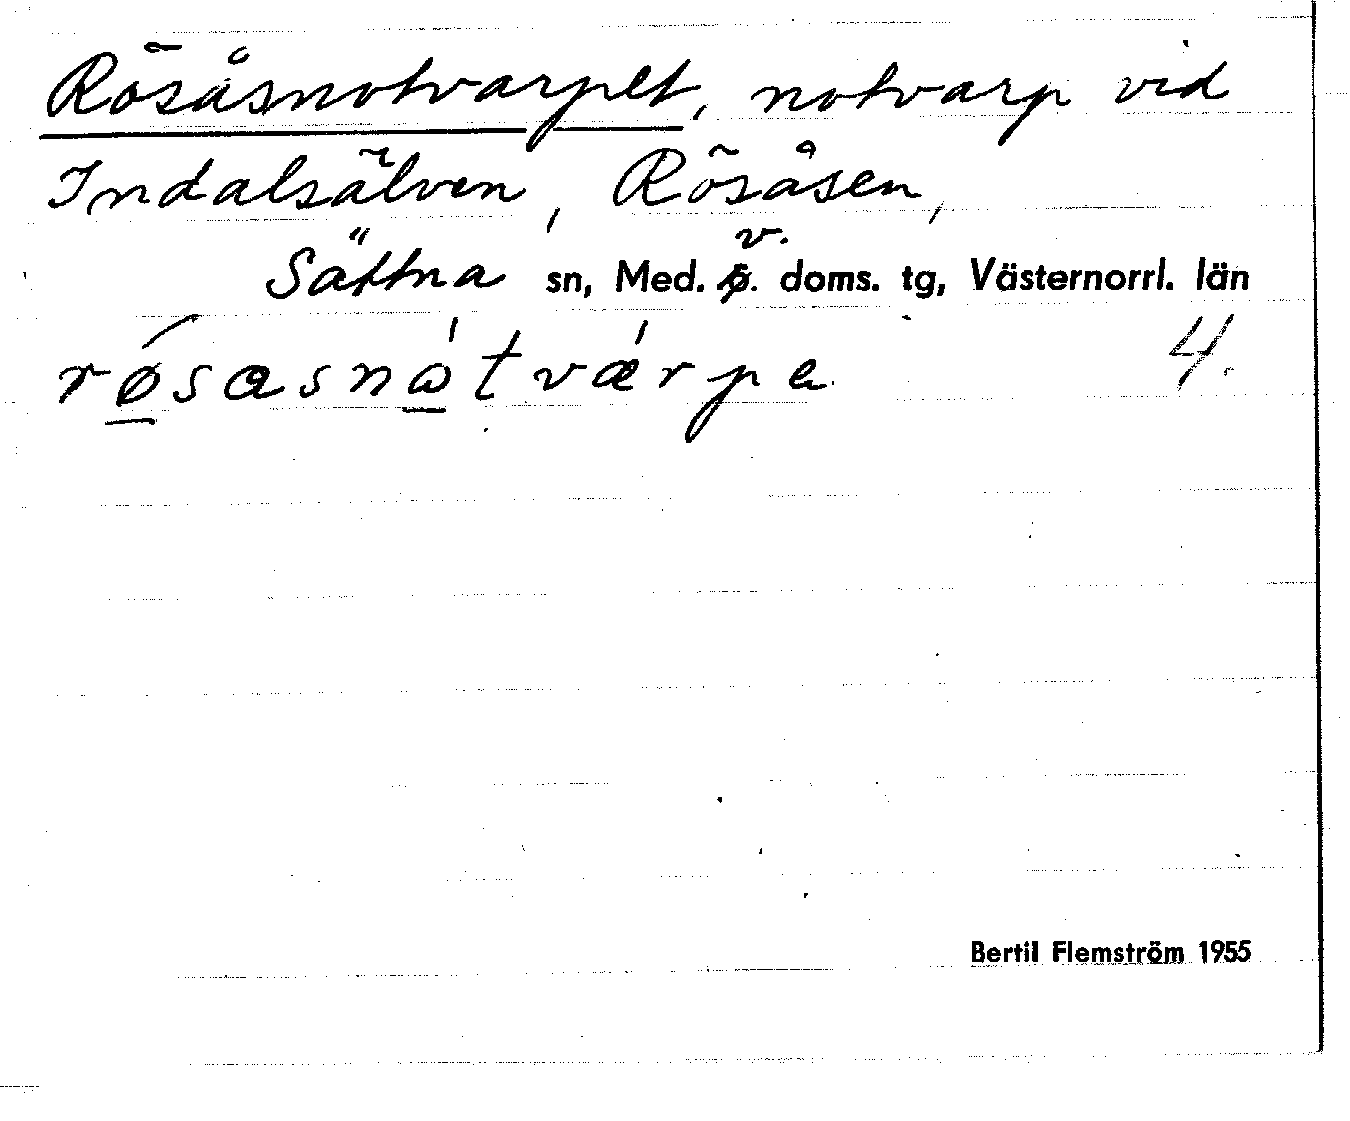 Rösåsnotvarpet, notvarp vid
Indalsälven, Rösåsen,
Sättna sn, Med. v. doms. tg, Västernorrl. län
røsasnωtværpe 4.
Bertil Flemström 1955